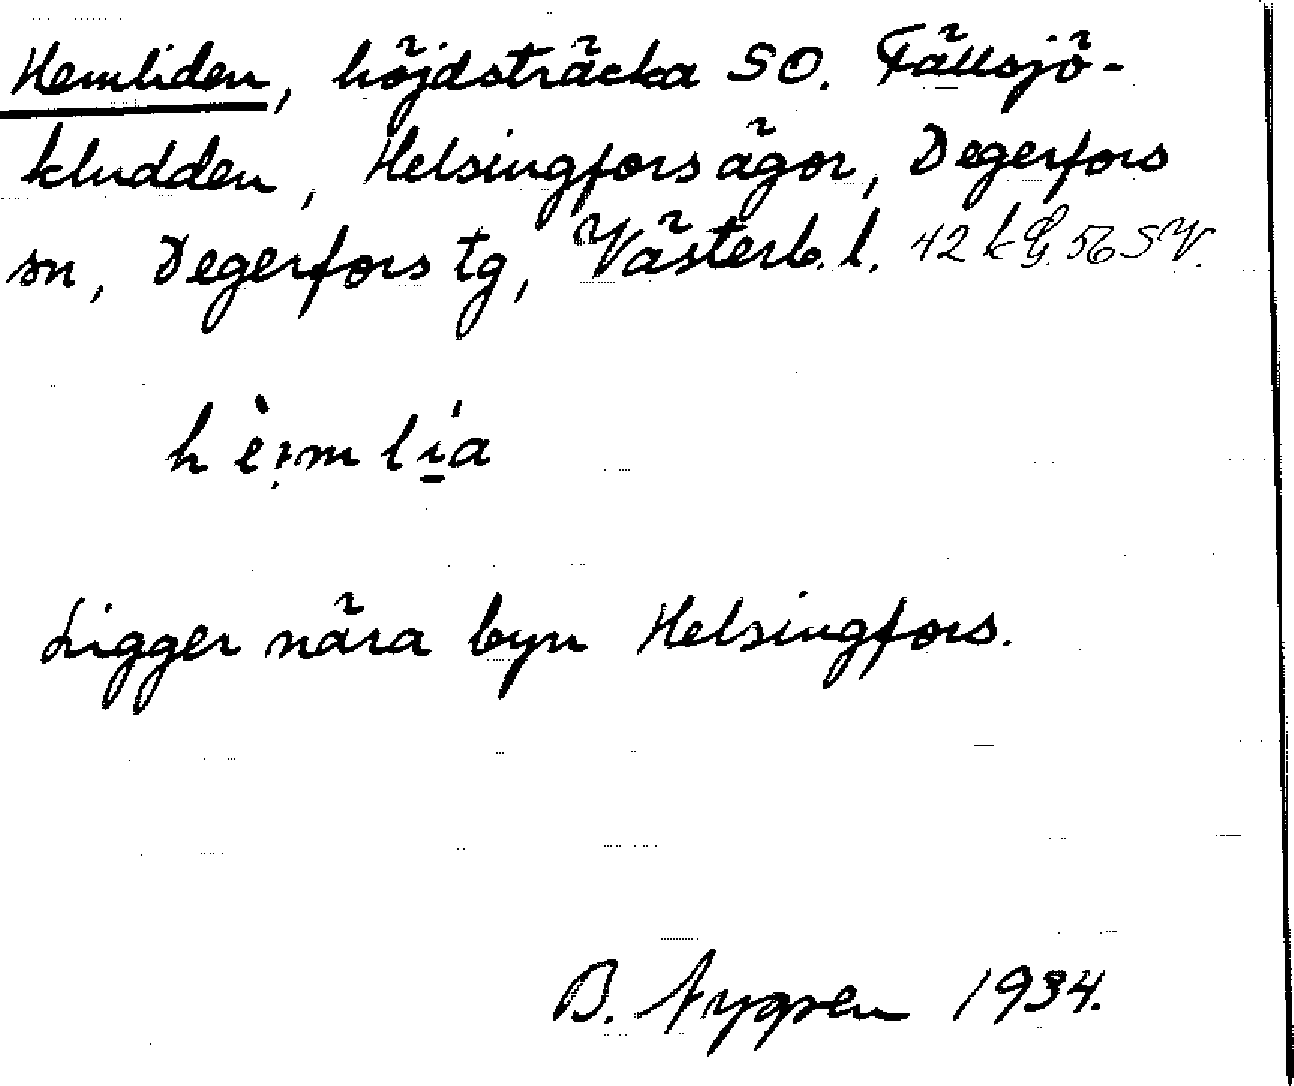 Hemliden, höjdsträcka SO. Fällsjö-
kludden, Helsingfors ägor, Degerfors
sn, Degerfors tg, Västerb. l. 42 k G. 56 SV.
hèmlia
Ligger nära byn Helsingfors.
B. Nygren 1934.